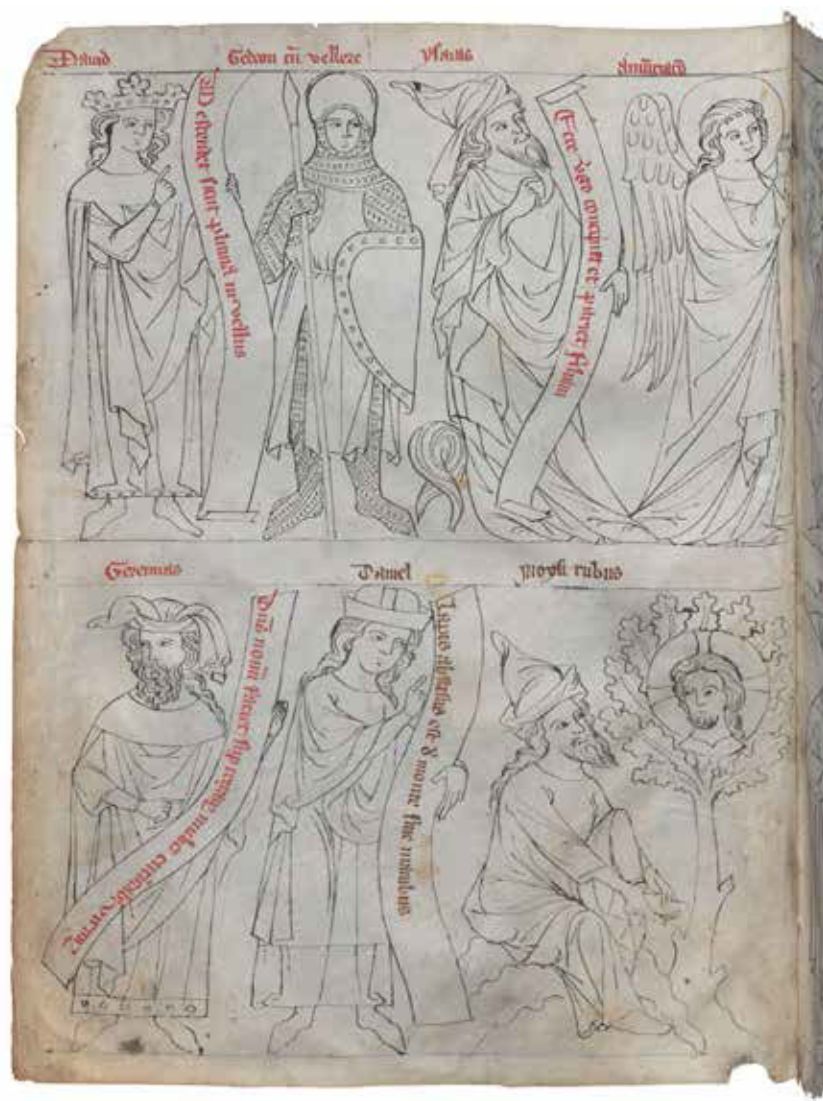 Dauid
Gedeon cū vellere
Ysaias
Annūciacō
Descendet sicut pluuia in vellus
Ecce v̄go concipiet et pariet filium
Geremias
Daniel
Moysi rubus
Dn̄s nouū faciet sup terrā mulier
Lapis abscisus est d monte sine manibus